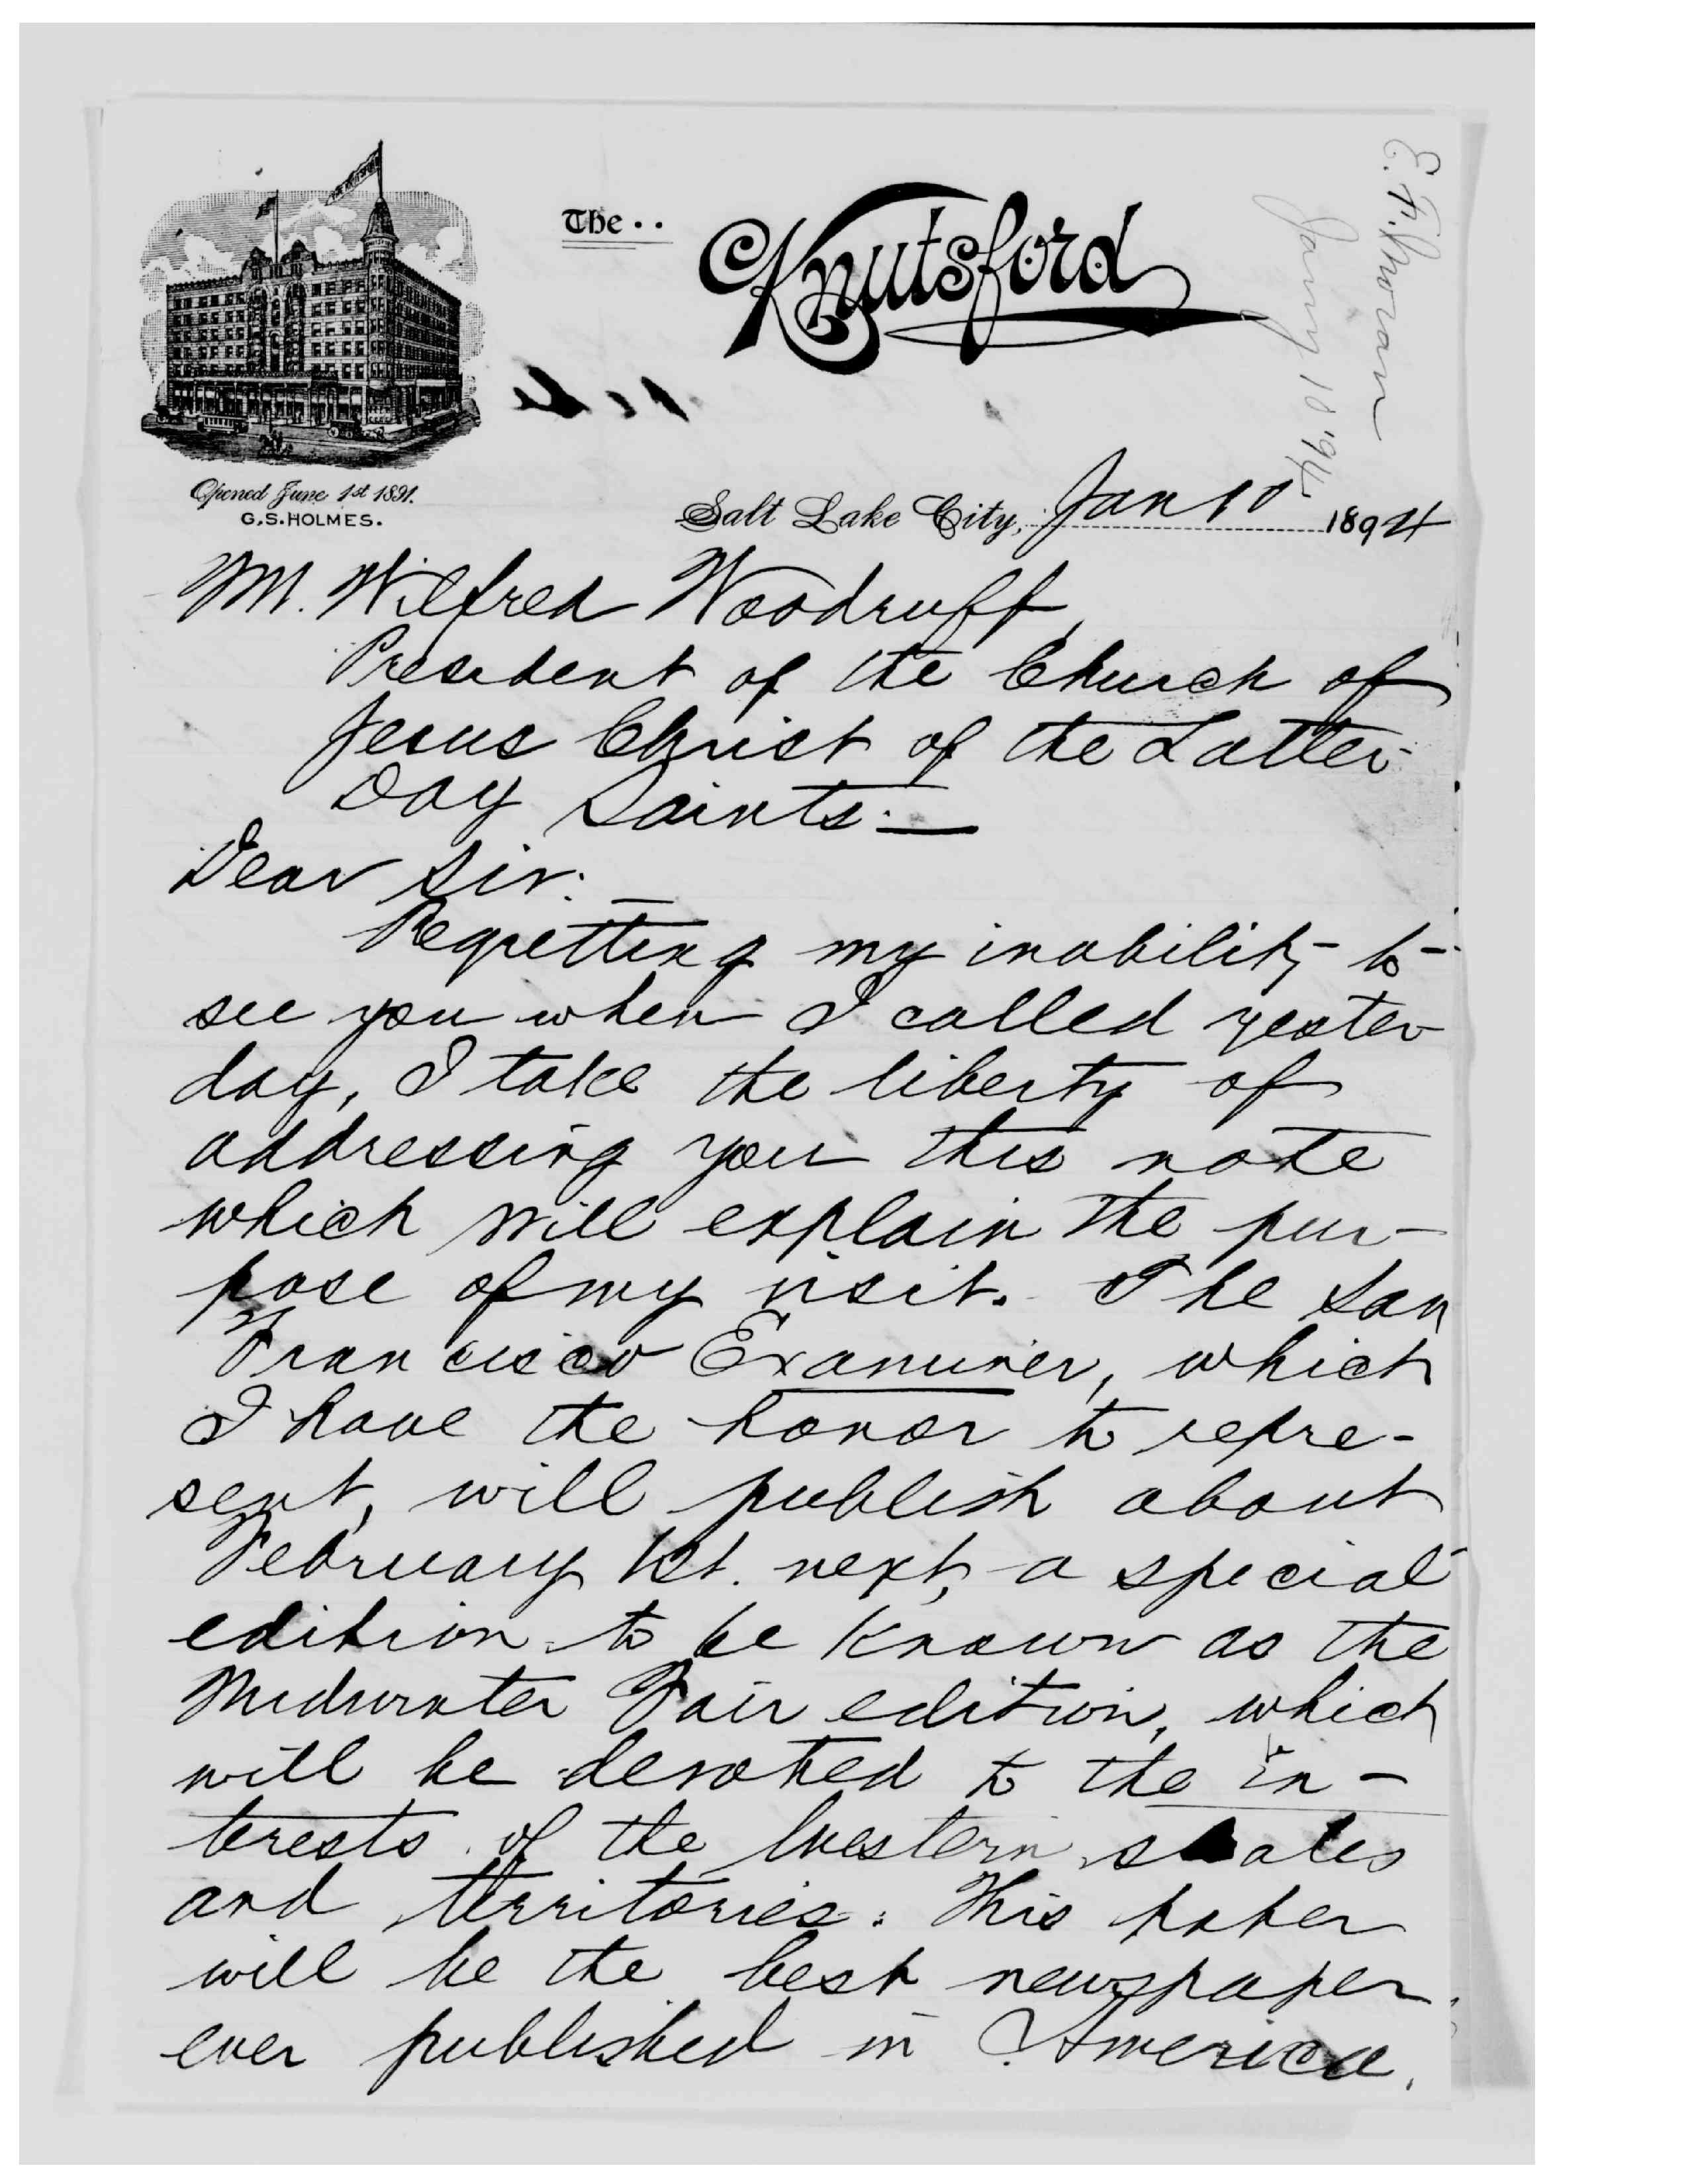 The..
Knutsford
E. F. Moran
Jany 10 '94
Opened June 1st 1891.
G.S. HOLMES.
Salt Lake City, Jan 10 1894
M. Wilfred Woodruff,
President of the Church of
Jesus Christ of the Latter-
Day Saints:—
Dear Sir:—
Regretting my inability to
see you when I called yester
day, I take the liberty of
addressing you this note
which will explain the pur-
pose of my visit. The San
Francisco Examiner, which
I have the honor to repre-
sent, will publish about
February 1st. next, a special
edition to be known as the
Midwinter Fair edition, which
will be devoted to the in-
terests of the Western states
and territories. This paper
will be the best newspaper
ever published in America.